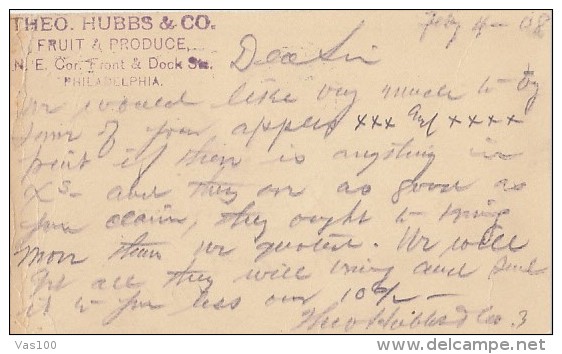 THEO. HUBBS & CO.
FRUIT & PRODUCE,
N. E. Cor. Front & Dock Sts.
PHILADELPHIA.
Feby 4 - 08
Dear Sir
We would like very much to try
some of your apples xxx and xxxx
point if there is anything in
Xs - and they are as good as
you claim, they ought to bring
more than we quoted. We will
get all they will bring and send
it to you less our 10% -
Theo Hubbs & Co. 3
Vas100
www.delcampe.net